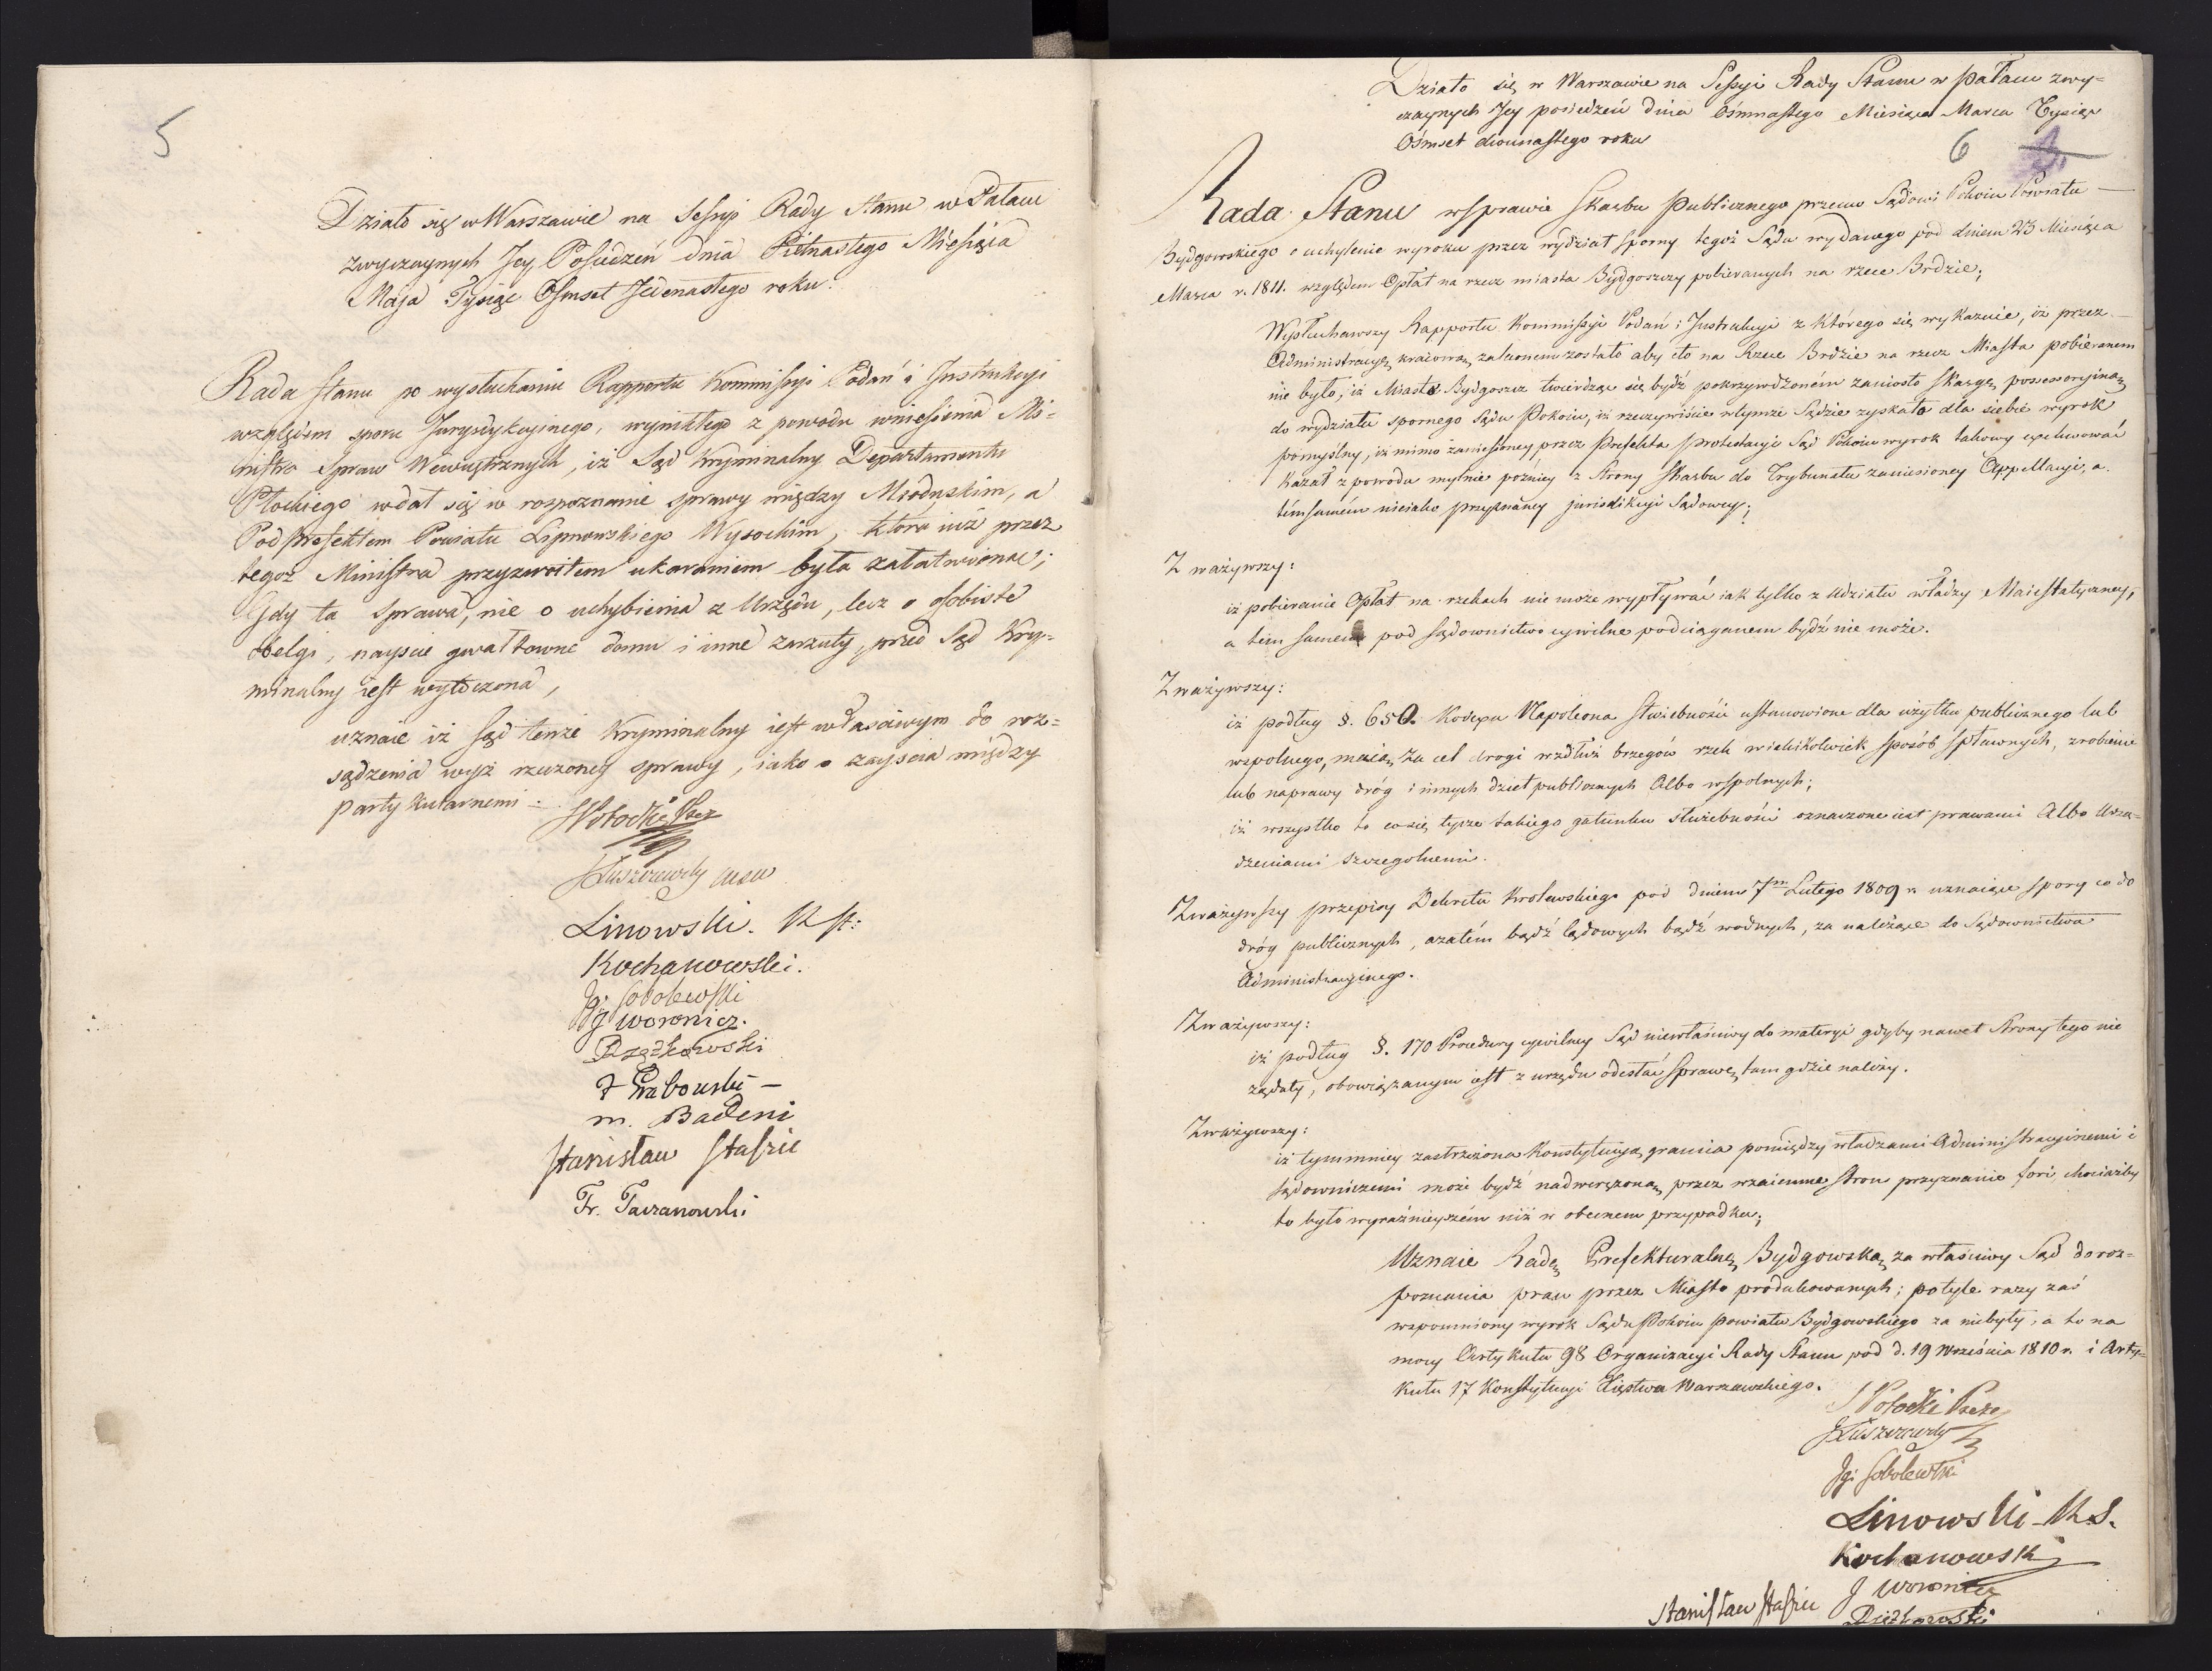 5
Działo się w Warszawie na Sessyi Rady Stanu w Pałacu
zwyczaynych Jey Posiedzeń dnia Piętnastego Miesiąca
Maja Tysiąc Osmset Jedenastego roku.
Rada Stanu po wysłuchaniu Rapportu Kommissyi Podań i Instrukcyi
względem sporu Jurysdykcyinego, wynikłego z powodu wniesienia Mi-
nistra Spraw Wewnętrznych, iż Sąd Kryminalny Departamentu
Płockiego wdał się w rozpoznanie sprawy między Mioduskim, a
Podprefektem Powiatu Lipnowskiego Wysockim, która iuż przez
tegoż Ministra przyzwoitem ukaraniem była załatwiona;
Gdy ta sprawa, nie o uchybienia z Urzędu, lecz o osobiste
obelgi, nayście gwałtowne domu i inne zarzuty, przed Sąd Kry-
minalny iest wytoczona,
uznaie iż Sąd tenże Kryminalny iest właściwym do roz-
sądzenia wyż rzeczoney sprawy, iako o zayścia między
partykularnemi.
S Potocki Prez
J Łuszczewski
Linowski. R St:
Kochanowski.
Ig: Sobolewski
J Woronicz.
Rządkowski
F Grabowski
m. Badeni
Stanisław Staszic
Fr. Taczanowski
Działo się w Warszawie na Sessyi Rady Stanu w Pałacu zwy-
czaynych Jey posiedzeń dnia Ośmnastego Miesiąca Marca Tysiąc
Ośmset dwunastego roku
6
Rada Stanu w sprawie Skarbu Publicznego przeciw Sądowi Pokoiu Powiatu
Bydgowskiego o uchylenie wyroku przez wydział sporny tegoż Sądu wydanego pod dniem 23 Miesiąca
Marca r. 1811. względem Opłat na rzecz miasta Bydgoszczy pobieranych na rzece Brdzie;
Wysłuchawszy Rapportu Kommissyi Podań i Instrukcyi z którego się wykazuie, iż przez
Administracyę kraiową zaleconem zostało aby cło na Rzece Brdzie na rzecz Miasta pobieranem
nie było, iż Miasto Bydgoszcz twierdząc się bydź pokrzywdzoném zaniosło Skargę possessoryiną
do wydziału spornego Sądu Pokoiu, iż rzeczywiście w tymże Sądzie zyskało dla siebie wyrok
pomyślny, iż mimo zaniesioney przez Prefekta protestacyi Sąd Pokoiu wyrok takowy exekwować
kazał z powodu mylnie poźniey z Strony Skarbu do Trybunału zaniesioney Appellacyi, a
témsamém nieiako przyznaney jurisdikcyi Sądowey;
Zważywszy:
iż pobieranie Opłat na rzekach nie może wypływać iak tylko z udziału władzy Maiestatyczney,
a tem samem pod Sądownictwo cywilne podciąganem bydź nie może.
Zważywszy:
iż podług §. 650. Kodexu Napoleona służebności ustanowione dla użytku publicznego lub
wspolnego, maią za cel drogi wzdłuż brzegów rzek wiakikolwiek sposób spławnych, zrobienie
lub naprawy dróg i innych dzieł publicznych Albo wspolnych;
iż wszystko to co się tycze takiego gatunku służebności oznaczone iest prawami Albo Urzą-
dzeniami szczególnemi.
Zważywszy przepisy Dekretu Krolewskiego pod dniem 7m Lutego 1809 r. uznaiące spory co do
dróg publicznych, azatém bądź lądowych bądź wodnych, za należące do Sądownictwa
Administracyinego.
Zważywszy:
iż podług §. 170 Procedury cywilney Sąd niewłaściwy do materyi gdyby nawet Strony tego nie
żądały, obowiązanym iest z urzędu odesłać Sprawę tam gdzie należy.
Zważywszy:
iż tymmniey zastrzeżona Konstytucyą granica pomiędzy władzami Administracyinemi i
Sądowniczemi może bydź nadwerężoną przez wzaiemne stron przyznanie fori, chociażby
to było wyraźnieyszém niż w obecnem przypadku;
Uznaie Radę Prefekturalną Bydgowską za właściwy Sąd do roz-
poznania praw przez Miasto produkowanych; potyle razy zaś
wspomniony wyrok Sądu Pokoiu powiatu Bydgowskiego za niebyły, a to na
mocy Artykułu 98 Organizacyi Rady Stanu pod d. 19 Września 1810 r. i Arty-
kułu 17 Konstytucyi Xięstwa Warszawskiego.
S Potocki Preze
J Łuszczewski
Ig: Sobolewski
Linowski R.S.
Kochanowski
J Woronicz
Stanisław Staszic
Rządkowski